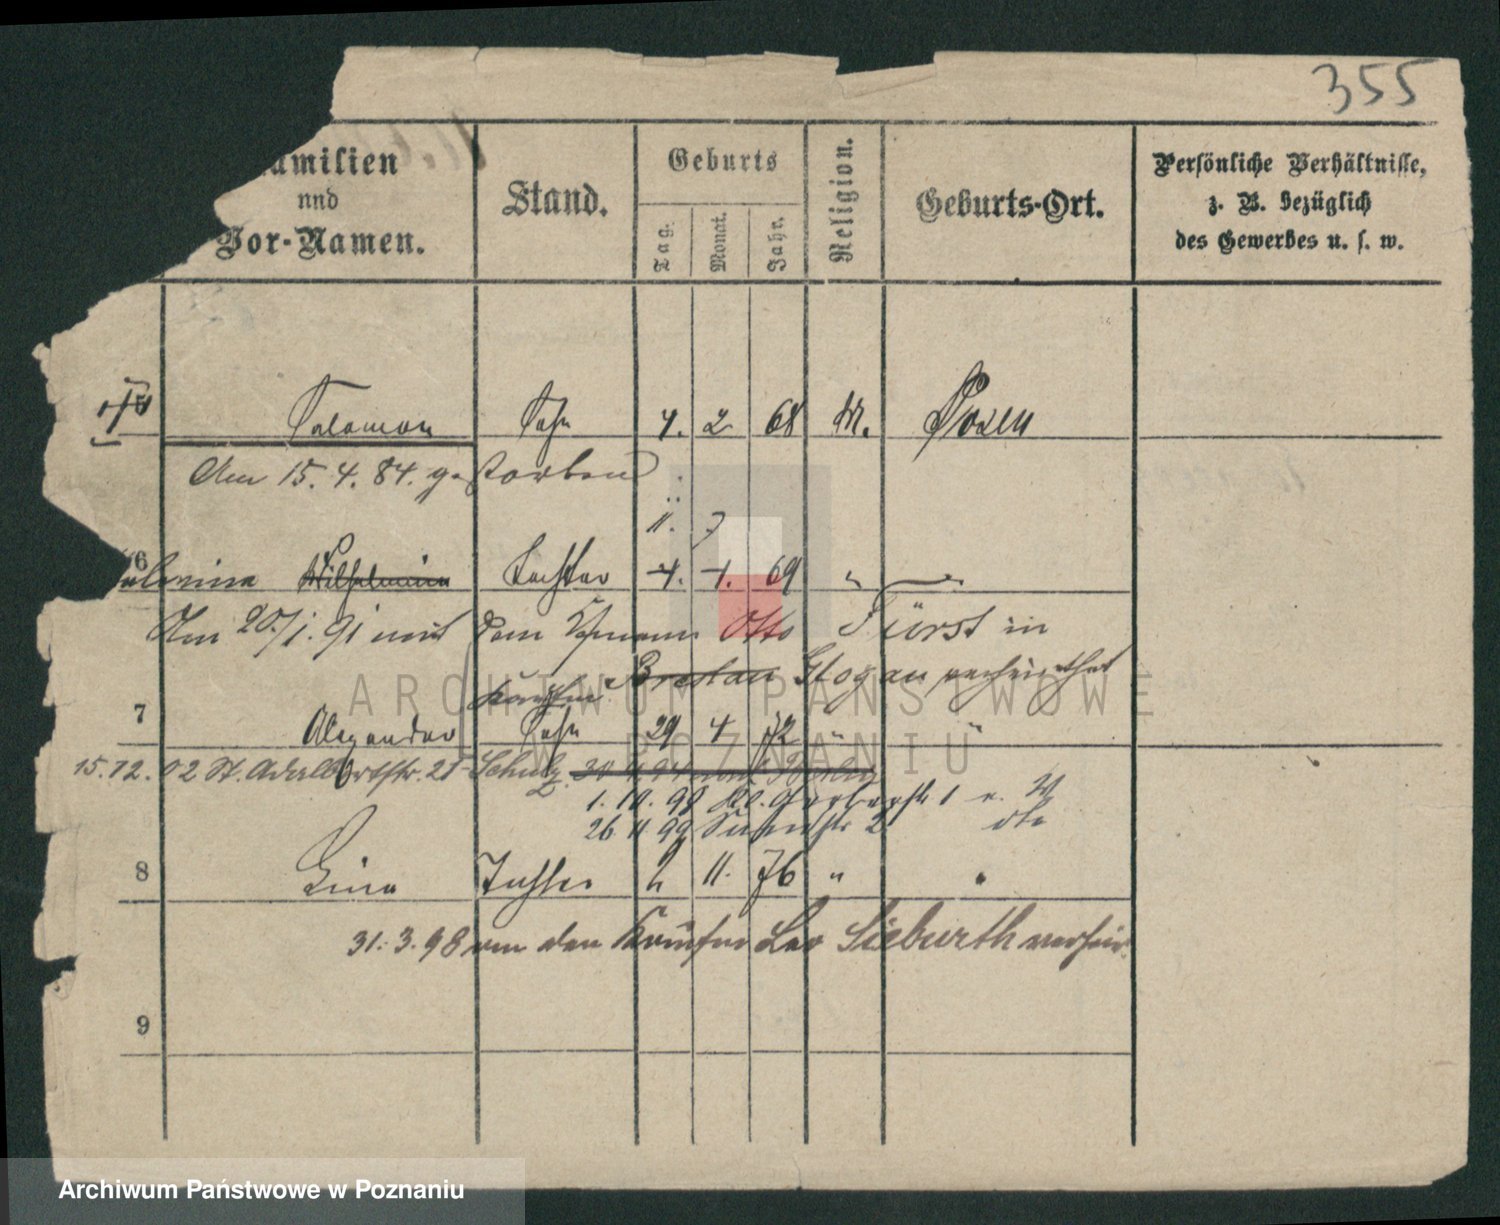 355
Familien
und
Vor-Namen.
Stand.
Geburts
Tag.
Monat.
Jahr.
Religion.
Geburts-Ort.
Persönliche Verhältnisse,
z. B. bezüglich
des Gewerbes u. s. w.
Salomon Sohn 4. 2 68 M. Posen
Am 15. 4. 84. gestorben
11. 7
6
Wilhelmine Tochter 4. 1. 69 "
Am 20./1. 91 mit dem Kfmann Otto Fürst in
Breslau Glogau verheirathet
7
Alexander Sohn 29 4 72 " "
15.12.02 St. Adalbertstr. 25 Schulz
1. 10. 98 Kl. Gerberstr 1
26 11 99
8
Lina Tochter 2 11. 76 " "
31. 3. 98 an den Kaufm Leo Sieburth verheir.
9
ARCHIWUM PAŃSTWOWE
W POZNANIU
Archiwum Państwowe w Poznaniu